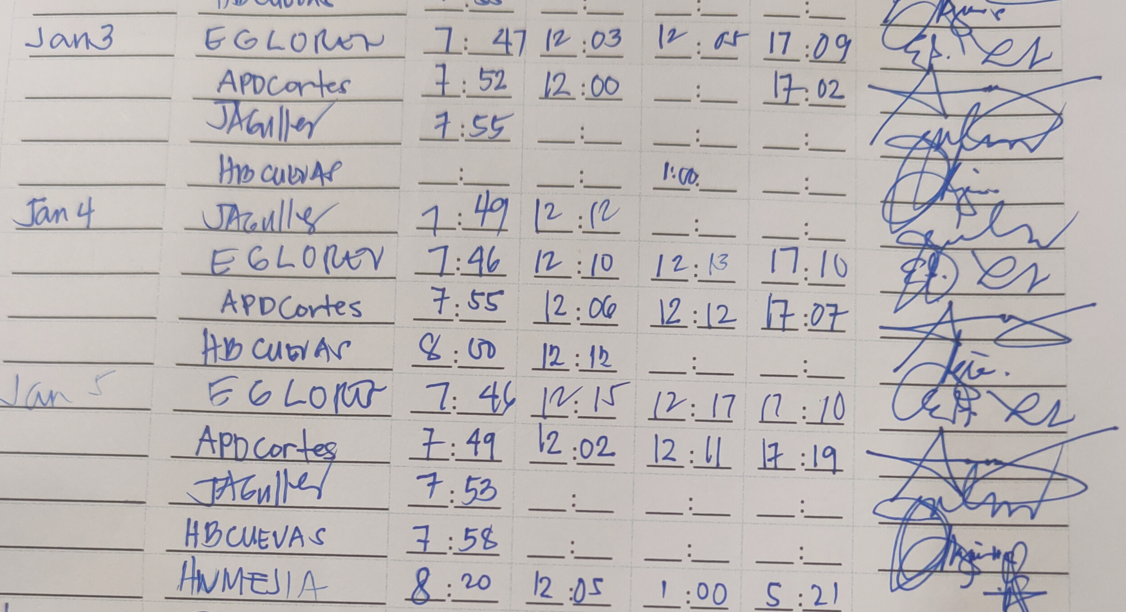 Jan 3 EGLOREN 7:47 12:03 12:05 17:09
APDCortes 7:52 12:00 __:__ 17:02
JAGuller 7:55 __:__ __:__ __:__
HBCUEVAS __:__ __:__ 1:00 __:__
Jan 4 JAGuller 7:49 12:12 __:__ __:__
EGLOREN 7:46 12:10 12:13 17:10
APDCortes 7:55 12:06 12:12 17:07
HBCUEVAS 8:00 12:12 __:__ __:__
Jan 5 EGLOREN 7:46 12:15 12:17 17:10
APDCortes 7:49 12:02 12:11 17:19
JAGuller 7:53 __:__ __:__ __:__
HBCUEVAS 7:58 __:__ __:__ __:__
HNMEJIA 8:20 12:05 1:00 5:21